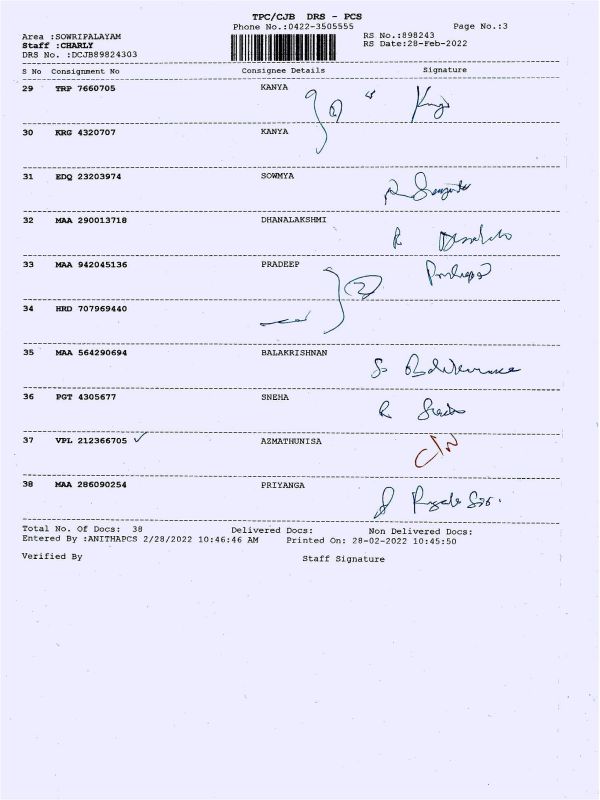 TPC/CJB DRS - PCS
Phone No.:0422-3505555 Page No.:3
Area :SOWRIPALAYAM RS No.:898243
Staff :CHARLY RS Date:28-Feb-2022
DRS No. :DCJB89824303
S No Consignment No Consignee Details Signature
29 TRP 7660705 KANYA
30 KRG 4320707 KANYA
31 EDQ 23203974 SOWMYA
32 MAA 290013718 DHANALAKSHMI
33 MAA 942045136 PRADEEP
2
34 HRD 707969440
35 MAA 564290694 BALAKRISHNAN
36 PGT 4305677 SNEHA
37 VPL 212366705 AZMATHUNISA
38 MAA 286090254 PRIYANGA
Total No. Of Docs: 38 Delivered Docs: Non Delivered Docs:
Entered By :ANITHAPCS 2/28/2022 10:46:46 AM Printed On: 28-02-2022 10:45:50
Verified By Staff Signature